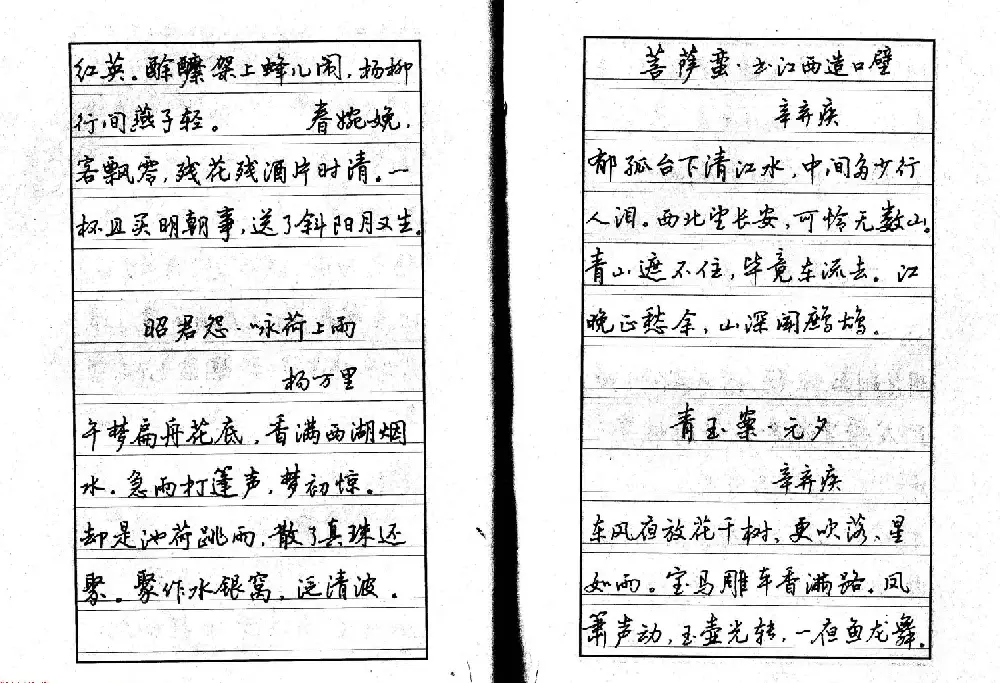 红英。酴醾架上蜂儿闹,杨柳
行间燕子轻。 春婉娩,
客飘零,残花残酒片时清。一
杯且买明朝事,送了斜阳月又生。
昭君怨·咏荷上雨
杨万里
午梦扁舟花底,香满西湖烟
水。急雨打篷声,梦初惊。
却是池荷跳雨,散了真珠还
聚。聚作水银窝,泛清波。
菩萨蛮·书江西造口壁
辛弃疾
郁孤台下清江水,中间多少行
人泪。西北望长安,可怜无数山。
青山遮不住,毕竟东流去。江
晚正愁余,山深闻鹧鸪。
青玉案·元夕
辛弃疾
东风夜放花千树,更吹落、星
如雨。宝马雕车香满路。凤
箫声动,玉壶光转,一夜鱼龙舞。